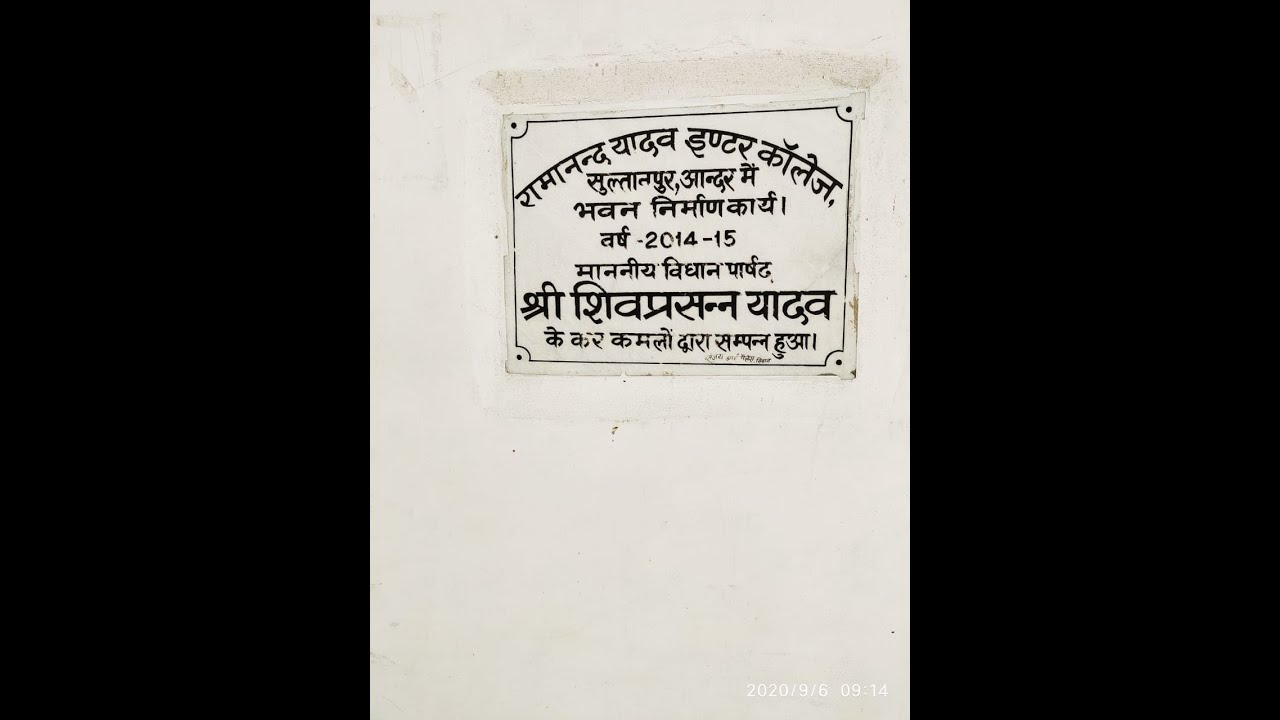 रामानन्द यादव इण्टर कॉलेज,
सुल्तानपुर, आन्दर में
भवन निर्माण कार्य।
वर्ष -2014-15
माननीय विधान पार्षद
श्री शिवप्रसन्न यादव
के कर कमलों द्वारा सम्पन्न हुआ।
2020/9/6 09:14